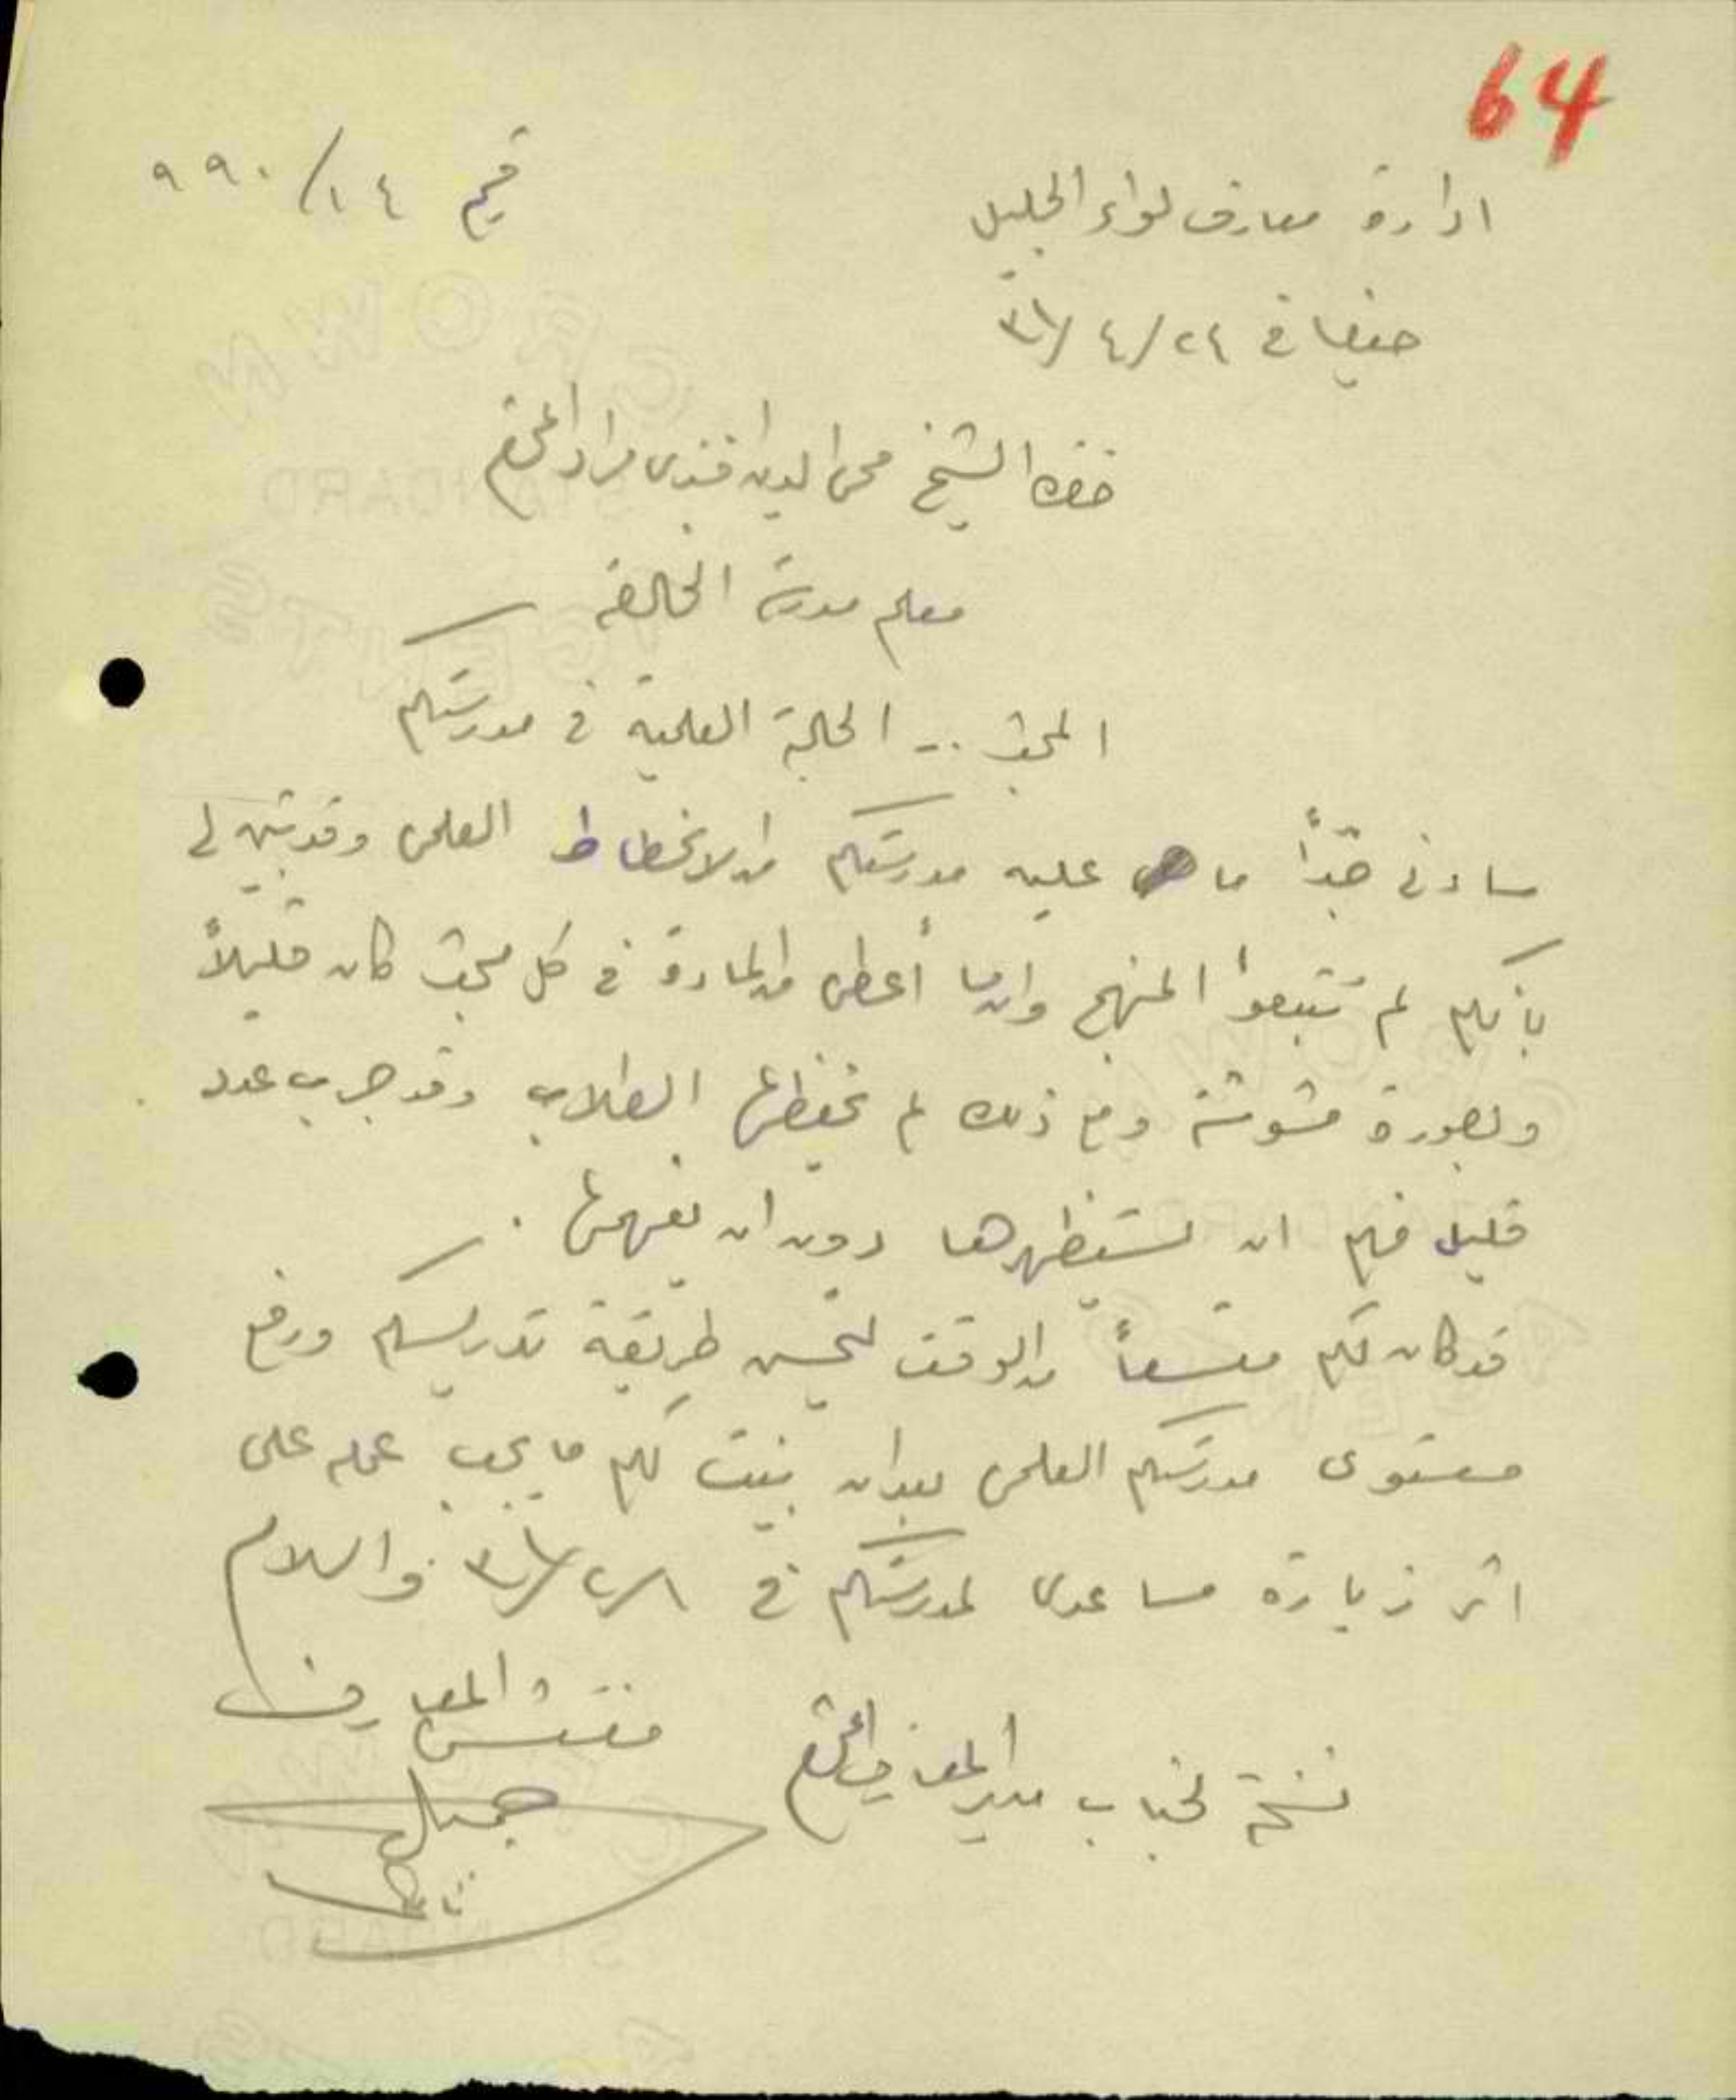 64
ادارة معارف لواء الجليل
قيم ١٤/٩٩٠
حيفا في ٢٤/٤/٣١
حضرة الشيخ محي الدين افندي مراد المحترم
معلم مدرسة الخالصة
المبحث .. الحالة العلمية في مدرستكم
ساءني جداً ما هي عليه مدرستكم من الانحطاط العلمي وقد تبين لي
بانكم لم تتبعوا المنهج وان ما أعطي من المادة في كل مبحث كان قليلاً
وبصورة مشوشة ومع ذلك لم يحفظها الطلاب وقد جرب عدد
قليل منهم ان يستظهرها دون ان يفهمها .
قد كان لكم متسعاً من الوقت لتحسين طريقة تدريسكم ورفع
مستوى مدرستكم العلمي بعد ان بينت لكم ما يجب عمله على
اثر زيارة مساعدي لمدرستكم في ٣١/٢/٨ والسلام
مفتش المعارف
نسخة لجناب مدير المعارف المحترم
جميل